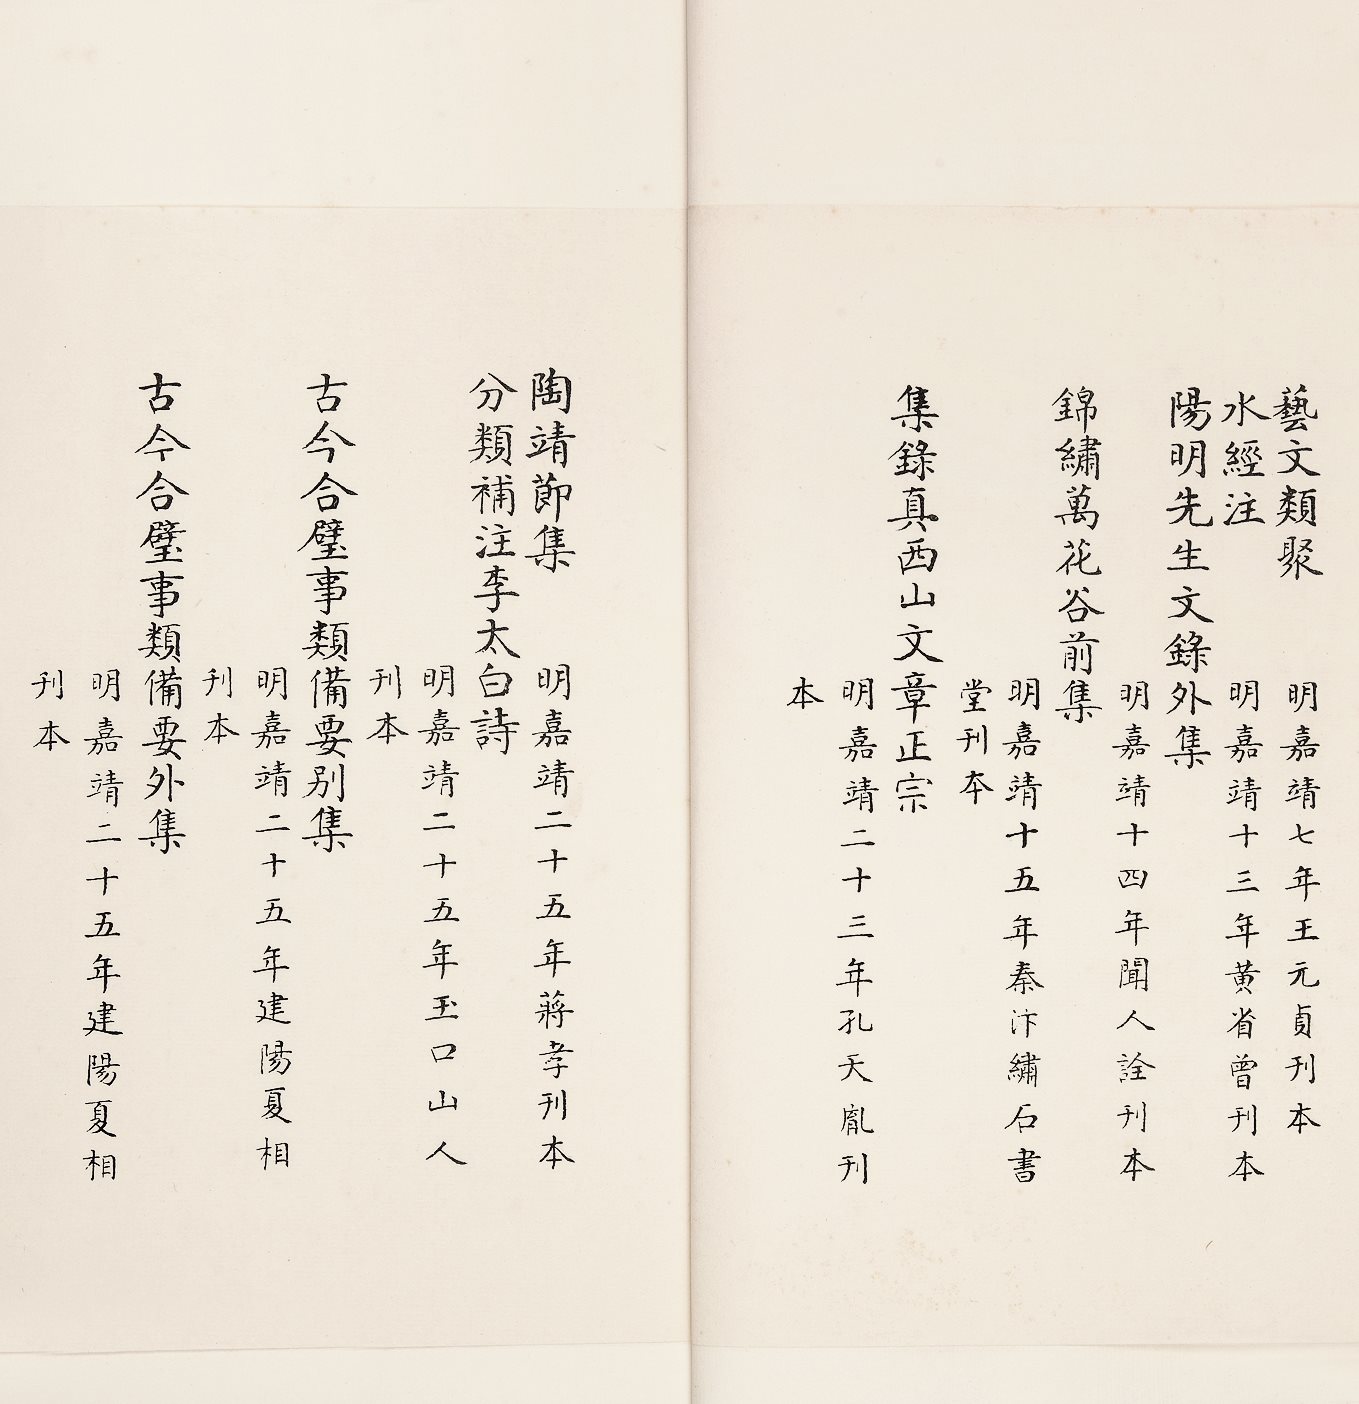 藝文類聚
明嘉靖七年王元貞刊本
水經注
明嘉靖十三年黃省曾刊本
陽明先生文錄外集
明嘉靖十四年聞人詮刊本
錦繡萬花谷前集
明嘉靖十五年秦汴繡石書
堂刊本
集錄真西山文章正宗
明嘉靖二十三年孔天胤刊
本
陶靖節集
明嘉靖二十五年蔣孝刊本
分類補注李太白詩
明嘉靖二十五年玉口山人
刊本
古今合璧事類備要別集
明嘉靖二十五年建陽夏相
刊本
古今合璧事類備要外集
明嘉靖二十五年建陽夏相
刊本